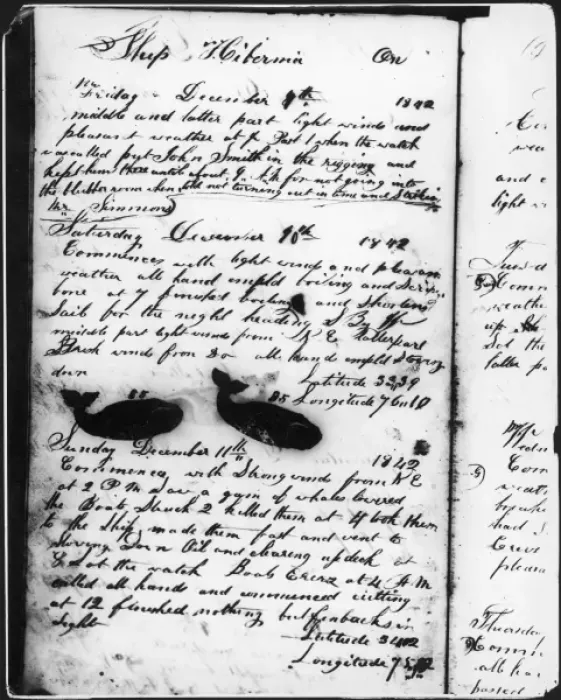 Ship Hibernia On
Friday December 9th 1842
middle and latter part light winds and
pleasant weather at 7 Past 1 when the watch
was called put John Smith in the rigging and
kept him there until about 9 A.M for not going into
the blubber room when not turning out in time and
Mr Simmons
Saturday December 10th 1842
Commences with light winds and pleasan
weather all hand empld boiling and
bone at 7 finished boiling and shortend
Sail for the night heading S By W
middle part light winds from N E Latter part
Fresh winds from Do all hand empld
down
Latitude 33,39
85 85 Longitude 76
Sunday December 11th 1842
Commences with Strong winds from N E
at 2 P M Saw a gam of whales Lowered
the Boats Struck 2 killed them at 4 took them
to the Ship made them fast and went to
Down Oil and clearing up deck at
8 Set the watch Boats Crews at 4 A M
called all hands and commenced cutting
at 12 finished nothing but finbacks in
Sight
Latitude 34
Longitude 75
and
light
the
latter
Com
Thursday
all ha
passed